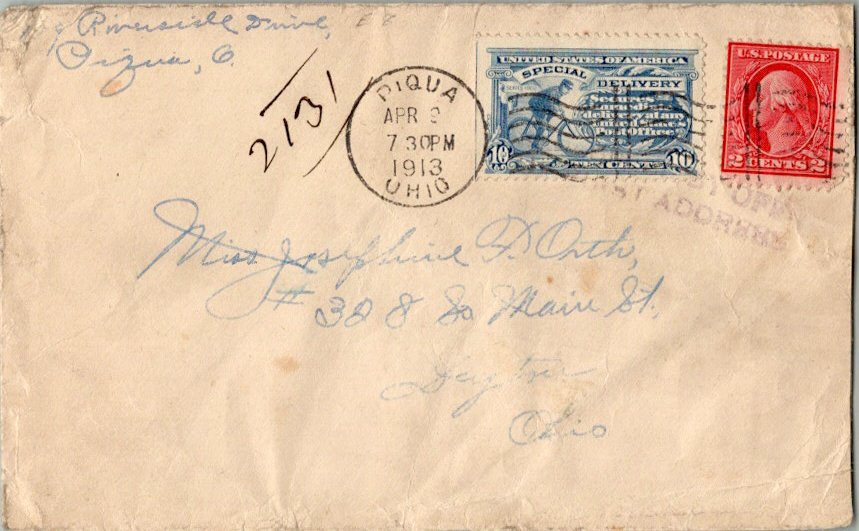 Riverside Drive,
Piqua, O.
2131
PIQUA
APR
7 30PM
1913
OHIO
UNITED STATES OF AMERICA
SPECIAL
DELIVERY
SECURES
IMMEDIATE
DELIVERY AT ANY
UNITED STATES
POST OFFICE
10 TEN CENTS 10
U.S. POSTAGE
2 CENTS 2
ADDRESS
Miss Josephine P. Orth,
# 328 So Main St.
Dayton
Ohio